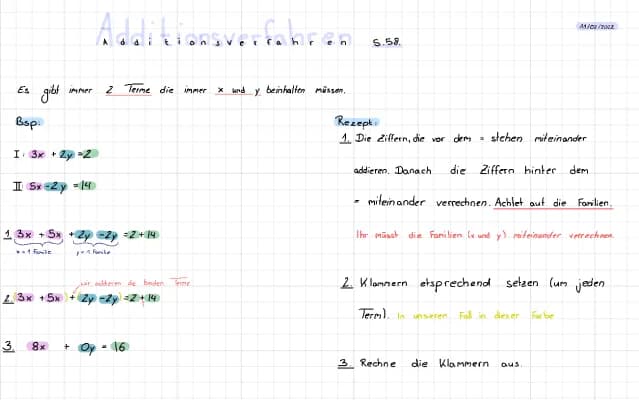 Additionsverfahren
Additionsverfahren S.58.
11/02/2022
Es gibt immer 2 Terme die immer x und y beinhalten müssen.
Bsp:
I: 3x + 2y = 2
II 5x - 2y = 14
1. 3x + 5x + 2y - 2y = 2 + 14
x = 1 Familie y = 1 Familie
wir addieren die beiden Terme
2. (3x + 5x) + (2y - 2y) = 2 + 14
3. 8x + 0y = 16
Rezept:
1. Die Ziffern, die vor dem = stehen miteinander
addieren. Danach die Ziffern hinter dem
= miteinander verrechnen. Achtet auf die Familien.
Ihr müsst die Familien (x und y) miteinander verrechnen.
2. Klammern etsprechend setzen (um jeden
Term). In unseren Fall in dieser Farbe
3. Rechne die Klammern aus.